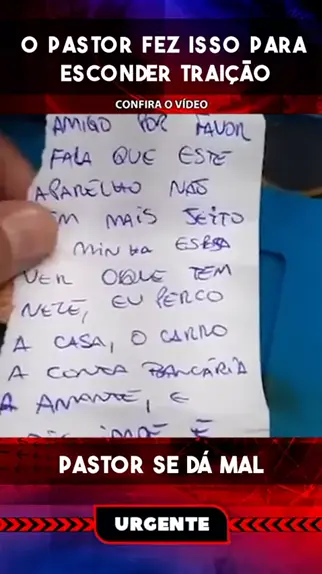 O PASTOR FEZ ISSO PARA
ESCONDER TRAIÇÃO
CONFIRA O VÍDEO
AMIGO POR FAVOR
FALA QUE ESTE
APARELHO NÃO
MAIS JEITO
MINHA
VER OQUE TEM
NELE, EU PERCO
A CASA, O CARRO
A CONTA BANCÁRIA
A AMANTE, E
PASTOR SE DÁ MAL
URGENTE